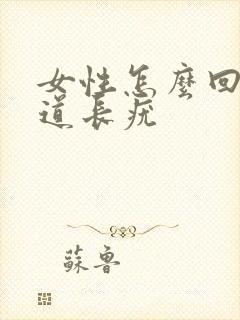 女性怎麼回
道長疣
蘇魯